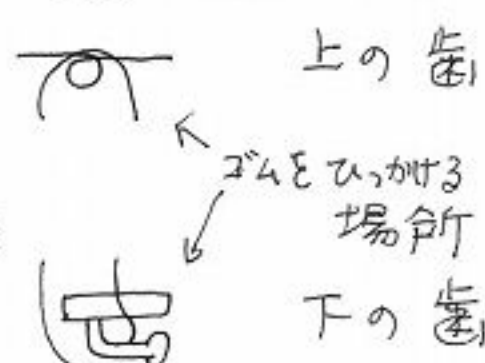 上の歯
ゴムをひっかける
場所
下の歯